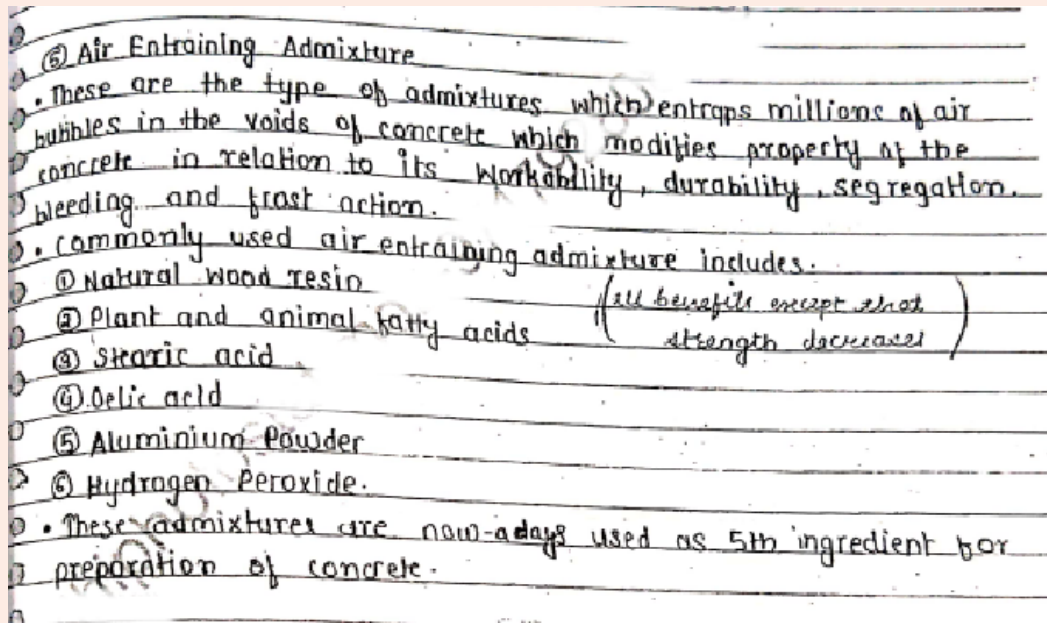 ⑤ Air Entraining Admixture
• These are the type of admixtures which entraps millions of air
bubbles in the voids of concrete which modifies property of the
concrete in relation to its workability, durability, segregation.
bleeding and frost action.
• commonly used air entraining admixture includes.
① Natural wood resin
② Plant and animal fatty acids
(all benefits except that
strength decreases)
③ Stearic acid
④ Oelic acid
⑤ Aluminium Powder
⑥ Hydrogen Peroxide.
• These admixtures are now-adays used as 5th ingredient for
preparation of concrete.